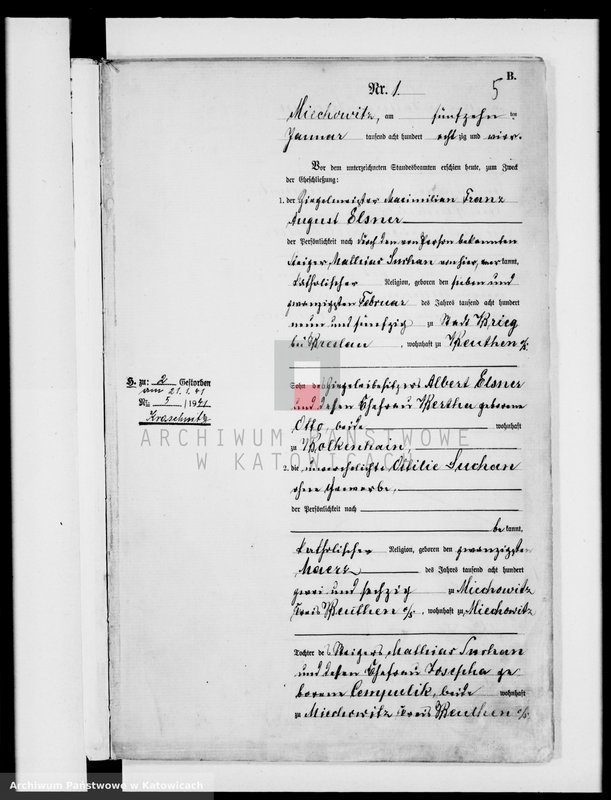 B.
5
Nr. 1
Miechowitz, am fünfzehn ten
Januar tausend acht hundert acht zig und vier.
Vor dem unterzeichneten Standesbeamten erschien heute, zum Zweck
der Eheschließung:
1. der Ziegelmeister Maximilian Franz
August Elsner
der Persönlichkeit nach durch den von Person bekannten
Steiger Mathias Suchan von hier, aner kannt,
katholischer Religion, geboren den sieben und
zwanzigsten Februar des Jahres tausend acht hundert
neun und fünfzig zu Stadt Brieg
bei Breslau, wohnhaft zu Beuthen o/s.
Sohn des Ziegeleibesitzers Albert Elsner
und dessen Ehefrau Bertha geborene
Otto, beide wohnhaft
zu Bolkenhain
2. die unverehelichte Ottilie Suchan
ohne Gewerbe,
der Persönlichkeit nach
be kannt,
katholischer Religion, geboren den zwanzigsten
Maerz des Jahres tausend acht hundert
zwei und sechzig zu Miechowitz
Kreis Beuthen o/s, wohnhaft zu Miechowitz
Tochter des Steigers Mathias Suchan
und dessen Ehefrau Josepha ge
borene Cempulik, beide wohnhaft
zu Miechowitz Kreis Beuthen o/s.
H. zu: 2 Gestorben
am 21.1.41
Nr. 5 / 1941
Kraschnitz
ARCHIWUM PAŃSTWOWE
W KATOWICACH
Archiwum Państwowe w Katowicach